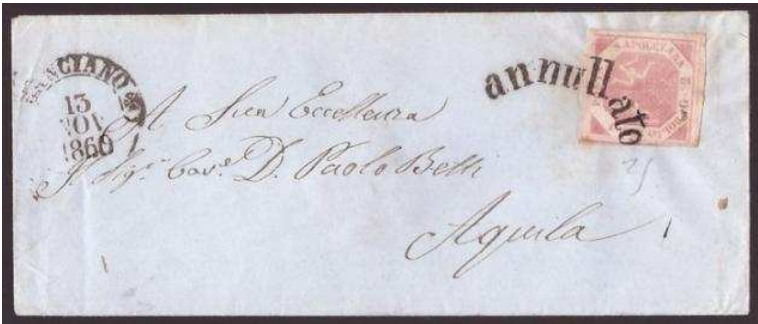 LANCIANO
13
NOV
1860
annullato
NAPOLETANA
G 2
A Sua Eccellenza
Il Sigr Cavre D. Paolo Belli
Aquila